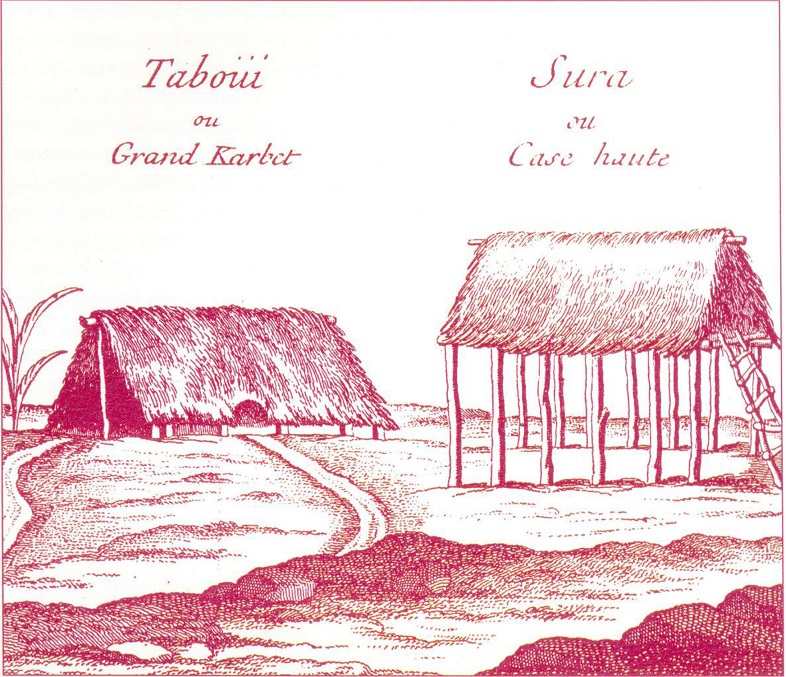 Taboüi
ou
Grand Karbet
Sura
ou
Case haute